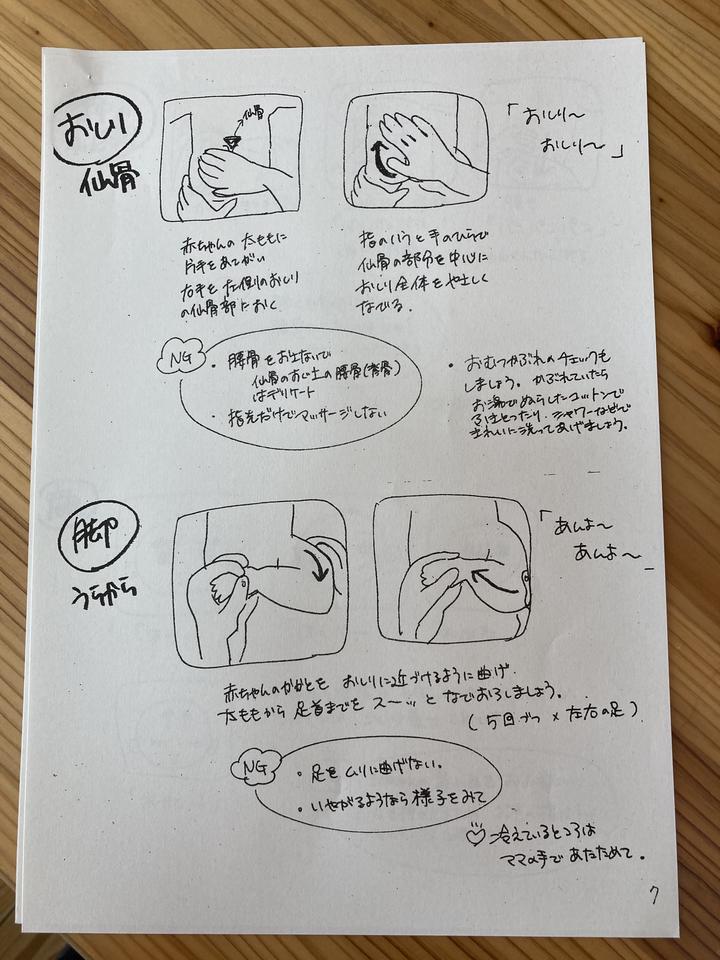 おしり
仙骨
仙骨
「おしり〜
おしり〜」
赤ちゃんの太ももに
片手をあてがい
右手を左側のおしり
の仙骨部におく
指のハラと手のひらで
仙骨の部分を中心に
おしり全体をやさしく
なでる。
NG
・腰骨をおさないで
仙骨のすじ上の腰骨(背骨)
はデリケート
・指先だけでマッサージしない
・おむつかぶれのチェックも
しましょう。かぶれていたら
お湯でぬらしたコットンで
ふきとったり、シャワーなどで
きれいに洗ってあげましょう。
脚
うらから
「あんよ〜
あんよ〜
赤ちゃんのかかとを おしりに近づけるように曲げ
太ももから足首までを スーッ となでおろしましょう。
(5回づつ×左右の足)
NG
・足をムリに曲げない。
・いやがるようなら様子をみて
冷えているところは
ママの手であたためて。
7